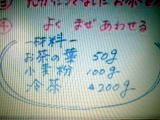 ④ よく まぜ あわせる
ー材料ー
お茶の葉 50g
小麦粉 100g
冷茶 200g